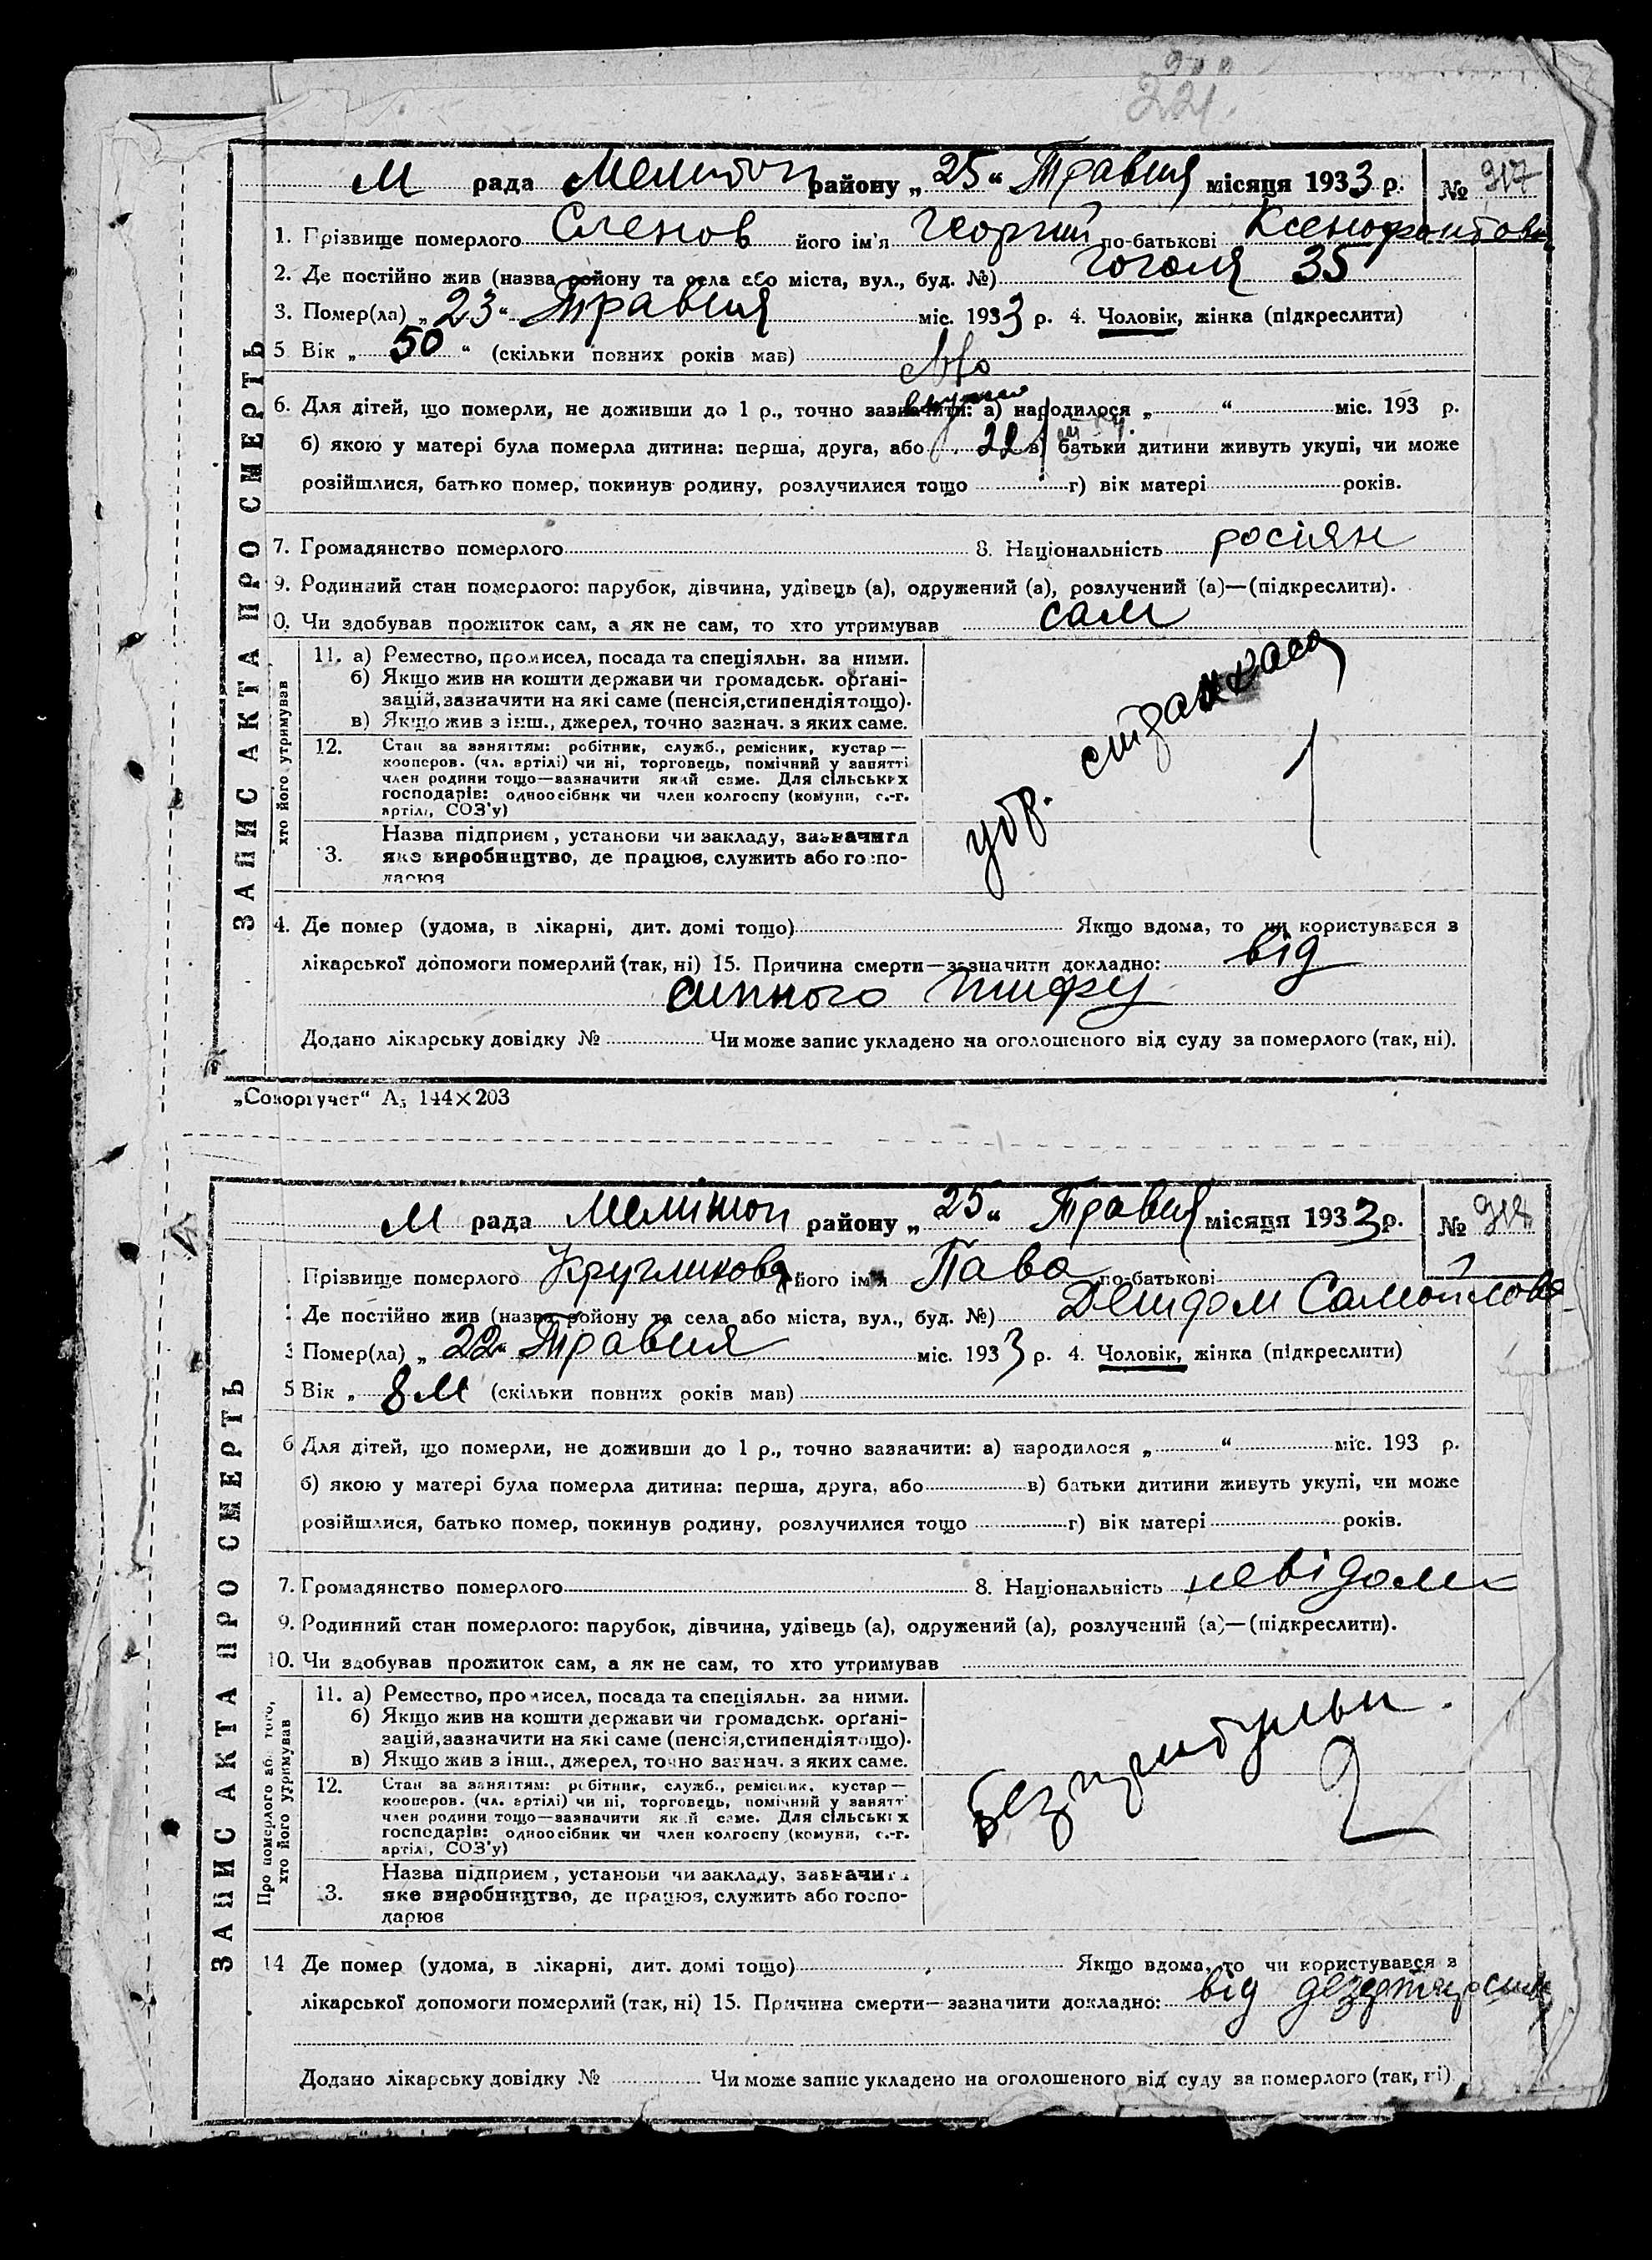 221.
М рада Мелитоп району „ 25 “ Травня місяця 1933 р. № 917
1. Прізвище померлого Сленов його ім'я Георгий по-батькові Ксенофонтови
2. Де постійно жив (назва району та села або міста, вул., буд. №) Гоголя 35
3. Помер(ла) „ 23 “ Травня міс. 1933 р. 4. Чоловік, жінка (підкреслити)
5 Вік „ 50 “ (скільки повних років мав)
6. Для дітей, що померли, не доживши до 1 р., точно зазначити: а) народилося „ “ міс. 193 р.
б) якою у матері була померла дитина: перша, друга, або 22 в) батьки дитини живуть укупі, чи може
розійшлися, батько помер, покинув родину, розлучилися тощо г) вік матері років.
7. Громадянство померлого 8. Національність росіян
9. Родинний стан померлого: парубок, дівчина, удівець (а), одружений (а), розлучений (а)—(підкреслити).
0. Чи здобував прожиток сам, а як не сам, то хто утримував сам
ЗАПИС АКТА ПРО СМЕРТЬ
хто його утримував
11. а) Ремество, промисел, посада та спеціяльн. за ними.
б) Якщо жив на кошти держави чи громадськ. орґані-
зацій, зазначити на які саме (пенсія, стипендія тощо).
в) Якщо жив з інш., джерел, точно зазнач. з яких саме.
12. Стан за заняттям: робітник, служб., ремісник, кустар—
кооперов. (чл. артілі) чи ні, торговець, помічний у занятті
член родини тощо—зазначити який саме. Для сільських
господарів: одноосібник чи член колгоспу (комуни, с.-г.
артіл., СОЗ'у)
3. Назва підприєм, установи чи закладу, зазначити
яке виробництво, де працює, служить або госпо-
дарює
убр. страхкаса
1
4. Де помер (удома, в лікарні, дит. домі тощо) Якщо вдома, то чи користувався з
лікарської допомоги померлий (так, ні) 15. Причина смерти—зазначити докладно: від
сипного тифу
Додано лікарську довідку № Чи може запис укладено на оголошеного від суду за померлого (так, ні).
„Соворгучет“ А5 144×203
М рада Мелитоп району „ 25 “ Травня місяця 1933 р. № 918
Прізвище померлого Кругликова його ім'я Пава по-батькові
Де постійно жив (назва району та села або міста, вул., буд. №) Детдом Самойлова
3 Помер(ла) „ 22 “ Травня міс. 1933 р. 4. Чоловік, жінка (підкреслити)
5 Вік „ 8 м (скільки повних років мав)
6 Для дітей, що померли, не доживши до 1 р., точно зазначити: а) народилося „ “ міс. 193 р.
б) якою у матері була померла дитина: перша, друга, або в) батьки дитини живуть укупі, чи може
розійшлися, батько помер, покинув родину, розлучилися тощо г) вік матері років.
7. Громадянство померлого 8. Національність невідома
9. Родинний стан померлого: парубок, дівчина, удівець (а), одружений (а), розлучений (а)—(підкреслити).
10. Чи здобував прожиток сам, а як не сам, то хто утримував
ЗАПИС АКТА ПРО СМЕРТЬ
Про померлого або того, хто його утримував
11. а) Ремество, промисел, посада та спеціяльн. за ними.
б) Якщо жив на кошти держави чи громадськ. орґані-
зацій, зазначити на які саме (пенсія, стипендія тощо).
в) Якщо жив з інш., джерел, точно зазнач. з яких саме.
12. Стан за заняттям: робітник, служб., ремісник, кустар—
кооперов. (чл. артілі) чи ні, торговець, помічний у занятті
член родини тощо—зазначити який саме. Для сільських
господарів: одноосібник чи член колгоспу (комуни, с.-г.
артіл., СОЗ'у)
3. Назва підприєм, установи чи закладу, зазначити
яке виробництво, де працює, служить або госпо-
дарює
Безпритульн.
2
14 Де помер (удома, в лікарні, дит. домі тощо) Якщо вдома, то чи користувався з
лікарської допомоги померлий (так, ні) 15. Причина смерти—зазначити докладно: від
Додано лікарську довідку № Чи може запис укладено на оголошеного від суду за померлого (так, ні).